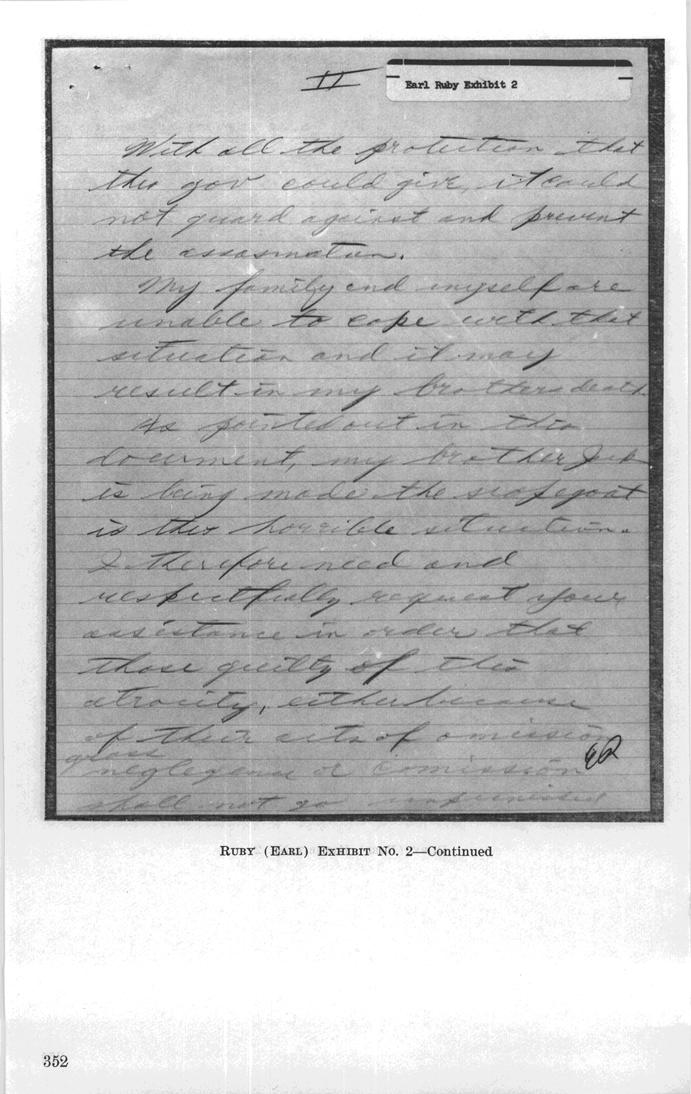 II
Earl Ruby Exhibit 2
With all the protection that
this gov could give, it could
not guard against and prevent
the assasination.
My family and myself are
unable to cope with that
situation and it may
result in my brothers death.
As pointed out in this
document, my brother Jack
is being made the scapegoat
is this horrible situation.
I therefore need and
respectfully request your
assistance in order that
those guilty of this
atrocity, either because
of their acts of omission
gross
neglegence or comission
shall not go unpunished
RUBY (EARL) EXHIBIT No. 2—Continued
352